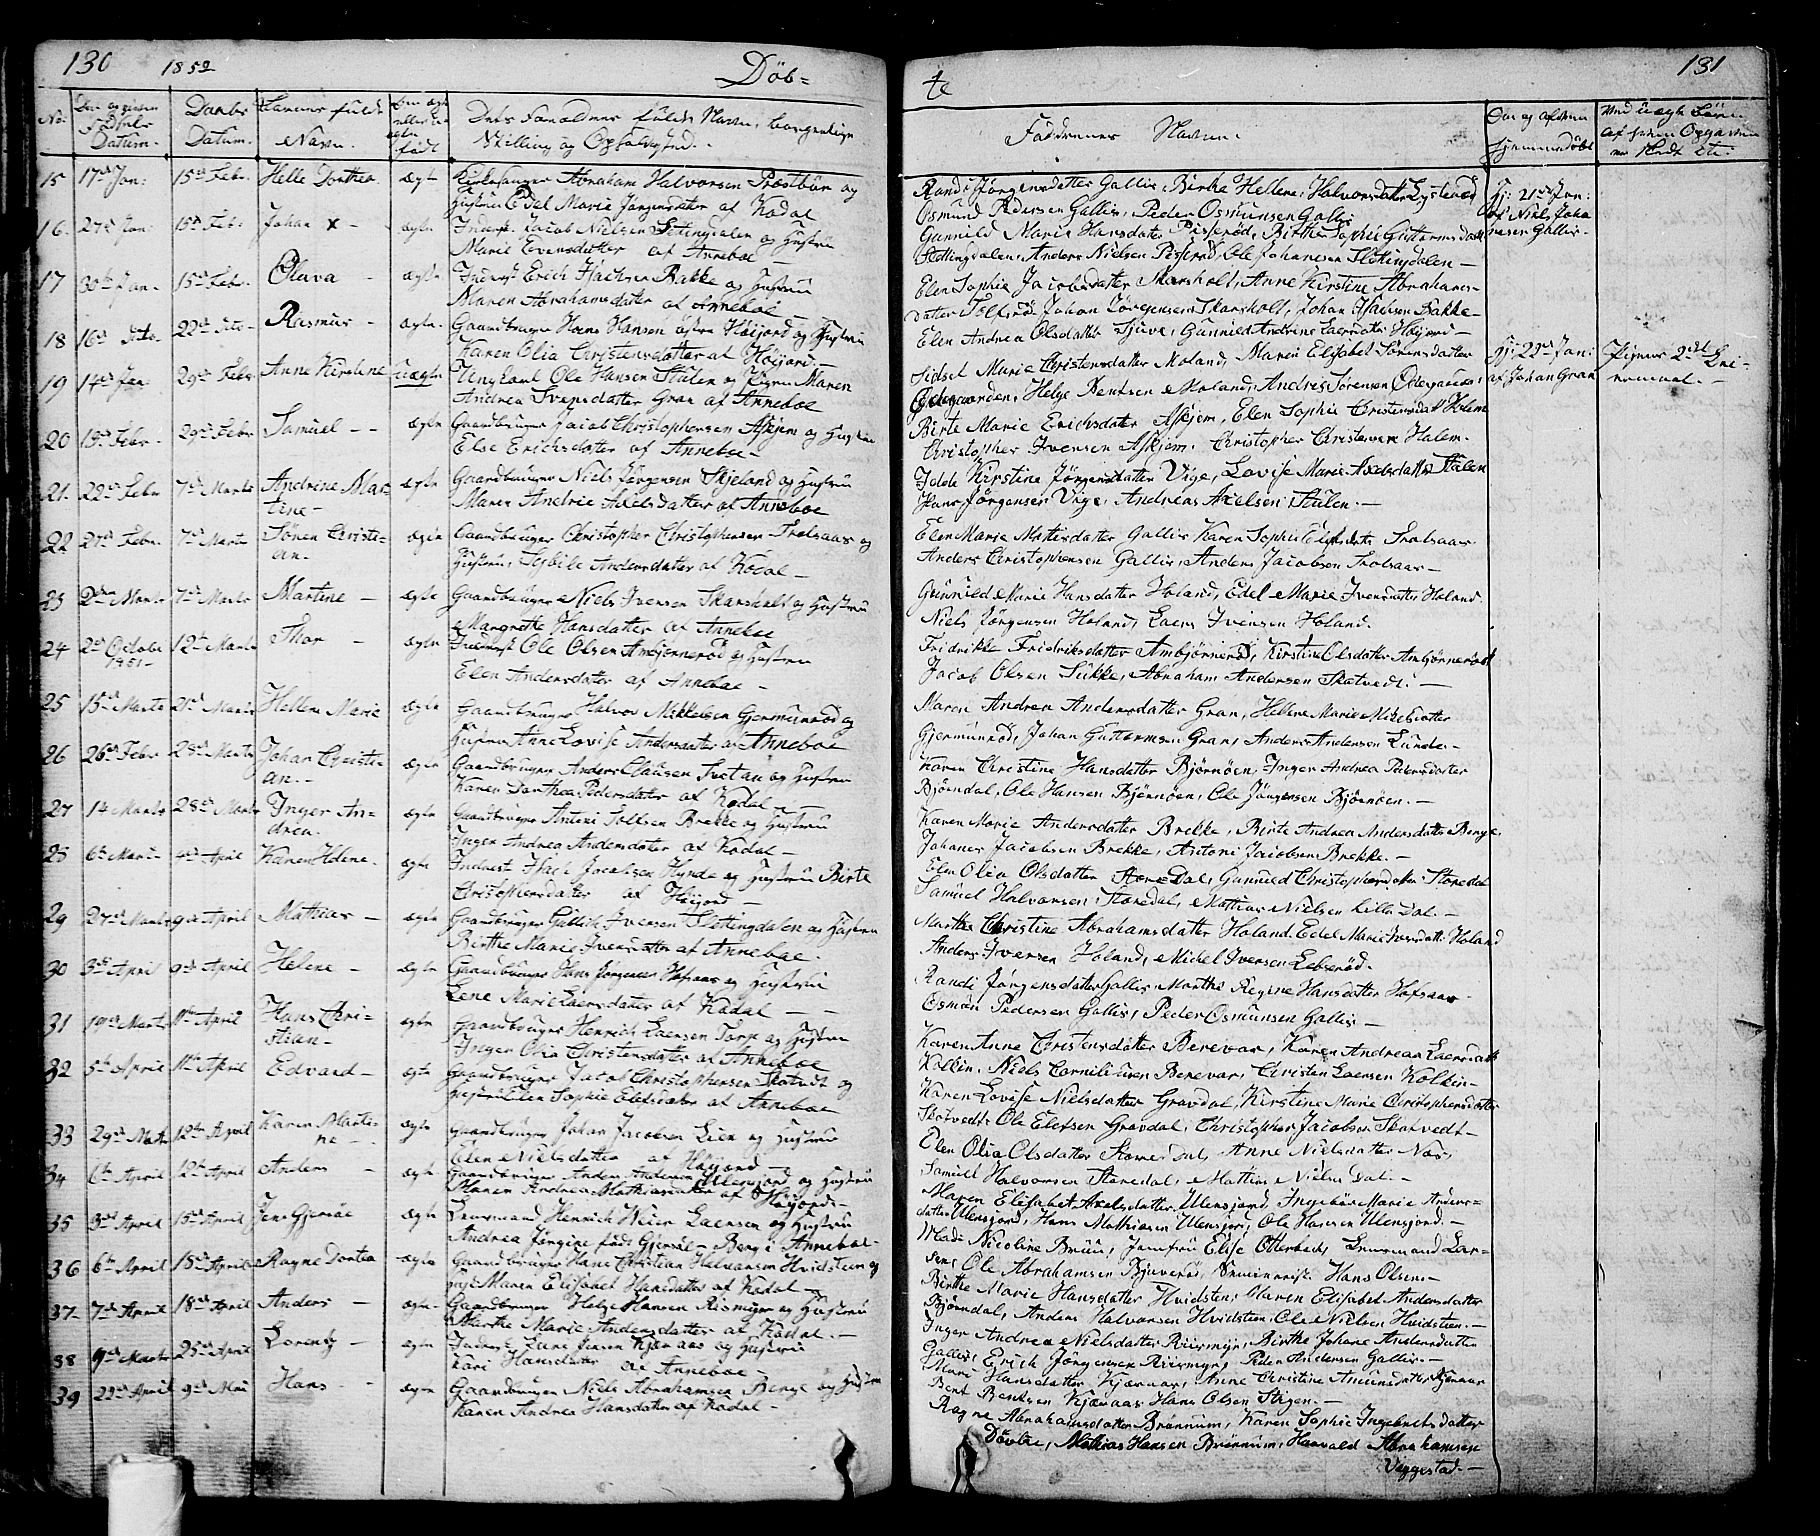 130 1852 Döb=
No. Datum. Daabs Datum. Navn.
15 17de Jan: 15de Febr. Helle Dorthea ægte Kirkesanger Abraham Halvorsen Præstbÿr og
Hustru Edel Marie Jörgensdatter af Kodal
16. 27de Jan: 15de Febr: Johan x - ægte Inderst Jacob Nielsen Slettingdalen og Hustru
Marie Evensdatter af Anneboe
17 30te Jan. 15de Febr. Olava - ægte Inderst Erich Isachsen Bakke og Hustru
Maren Abrahamsdatter af Anneboe -
18 16de 22de Rasmus - ægte Gaardbruger Hans Hansen Höijord og Hustru
Karen Olia Christensdatter af Höijord -
19 14de Jan 29de Febr. Anne Kirstine Uægte Ungkarl Ole Hansen Stulen og Pigen Maren
Andrea Svensdatter Gran af Anneboe
20 Febr. 29de Febr Samuel - - ægte Gaardbruger Jacob Christophersen Askjem og Hustru
Else Erichsdatter af Anneboe -
21. 22de Febr 7de Marts Andrine Mar= ægte Gaardbruger Niels Jörgensen Skjeland og Hustru
tine - Maren Andrie Axelsdatter af Anneboe
22 27de Febr. 7de Marts Sören Christi= ægte Gaardbruger Christopher Christophersen Trolsaas og
an. Hustru Sybile Andersdatter af Kodal -
23 2den Marts 7de Marts Martine - ægte Gaardbruger Niels Iversen Skarsholt og Hustru
Margrethe Hansdatter af Anneboe
24 2de Octobr 12te Marts Thor - ægte Inderst Ole Olsen Ambjörneröd og Hustru
1851 - Elen Andersdatter af Anneboe -
25 15de Marts 21de Marts Hellene Marie ægte Gaardbruger Halvor Nikkelsen Gjermunröd og
Hustru Anne Lovise Andersdatter af Anneboe
26 26de Febr 28de Marts Johan Christi= ægte Gaardbruger Anders Clausen Svetan og Hustru
an. - Karen Dorthea Pedersdatter af Kodal -
27 14 Marts 28de Marts Inger An= ægte Gaardbruger Antoni Tolfsen Brekke og Hustru
drea. Inger Andrea Andersdatter af Kodal -
28 6te Marts 4de April Karen Helene. ægte Inderst Isach Jacobsen Hynde og Hustru Birte
Christophersdatter af Höijord -
29 27de Marts 9de April Mathias - ægte Gaardbruger Guttich Iversen Slettingdalen og Hustru
Birthe Marie Iversdatter af Anneboe.
30 3de April 9de April Helene - ægte Gaardbruger Hans Jörgensen Hofsaas og Hustru
Lene Marie Laersdatter af Kodal - -
31 19de Marts 11te April Hans Chri= ægte Gaardbruger Henrich Laersen Torp og Hustru
stian - Inger Olia Christensdatter af Anneboe
32 5te April 11te April Edvard - ægte Gaardbruger Jacob Christophersen Skotvedt og
Hustru Elen Sophie Elefsdatter af Anneboe
33 29de Marts 12te April Karen Marti= ægte Gaardbruger Johan Jacobsen Lien og Hustru
ne - Elen Nielsdatter af Höijord -
34 6te April 12te April Anders - ægte Gaardbruger Anders Andersen Ulensjord og Hustru
Maren Andrea Mathiasdatter af Höijord -
35 3de April 15de April Jens Gjersöe ægte Lensmand Henrich Weier Laersen og Hustru
Andrea Jörgine födt Gjersöe - Berg i Anneboe -
36 6te April 18de April Ragne Dortea ægte Gaardbruger Hans Christian Halvorsen Hvidsteen og
Hust Maren Elisabet Hansdatter af Kodal -
37. 7de April 18de April Anders - ægte. Gaardbruger Helge Hansen Riismyer og Hustru
Marthe Marie Andersdatter af Kodal. -
38 9de Marts 25de April Lorentz - ægte Inderst Lars Jensen Kjæraas og Hustru
Kari Hansdatter af Anneboe
39 22de April 9de Mai Hans - ægte Gaardbruger Niels Abrahamsen Berge og Hustru
Karen Andrea Hansdatter af Kodal -
te 131
Faddrenes Navne.
Randi Jörgensdatter Gallis, Birthe Hellene Halvorsdatter Lysteröd Hj: 21de Jan:
Osmund Pedersen Gallis, Peder Osmunsen Gallis af Niels Joha
Gunnild Marie Hansdatter Pisseröd, Birthe Sophie Guttormsdatt nesen Gallis -
Slettingdalen, Anders Nielsen Pisseröd, Ole Johansen Slettingdalen -
Elen Sophie Jacobsdatter Skarsholt, Anne Kirstine Abrahams-
datter Tolfsrö, Johan Jörgensen Skarsholt, Johan Isachsen Bakke -
Elen Andrea Olsdatter Tjuve, Gunnild Andrine Laersdatt Höijord -
Sidsel Marie Christensdatter Moland, Maren Elisabet Sörensdatter Hj: 22de Jan: Pigens 2det Lei=
Ödegaarden, Helge Bentsen Moland, Andreas Sörensen Ödegaarden, af Johan Gran ermaal. -
Birte Marie Erichsdatter Askjem, Elen Sophie Christensdatt Holem
Christopher Iversen Askjem, Christopher Christensen Halem.
Idde Kirstine Jörgensdatter Vige, Lovise Marie Axelsdatter Stulen
Hans Jörgensen Vige, Andreas Axelsen Stulen. -
Elen Marie Mattisdatter Gallis Karen Sophie Trolsaas
Anders Christophersen Gallis, Anders Jacobsen Trolsaas -
Gunnild Marie Hansdatter Holand, Edel Marie Iversdatter Holand.
Niels Jörgensen Holand, Laers Iversen Holand.
Fridrikke Fridriksdatter Ambjörneröd, Kirstine Olsdatter Ambjörneröd
Jacob Olsen Sukke, Abraham Andersen Skotvedt. -
Maren Andrea Andersdatter Gran, Hellene Marie Mikelsdatter
Gjermunröd, Johan Guttormsen Gran, Anders Andersen Lunde. -
Karen Christine Hansdatter Björnöen, Inger Andrea Pedersdatter
Björndal, Ole Hansen Björnöen, Ole Jörgensen Björnöen. -
Karen Marie Andersdatter Brekke, Birte Andrea Andersdatter Berge
Johanes Jacobsen Brekke, Antoni Jacobsen Brekke. -
Elen Olia Olsdatter Store Dal, Gunnild Christophersdatter Storedal
Samuel Halvorsen Storedal, Mathias Nielsen Lille Dal. -
Marthe Christine Abrahamsdatter Holand. Edel Marie Iversdatt: Holand
Anders Iversen Holand, Michel Iversen Lebseröd.
Randi Jörgensdatter Gallis Marthe Regine Hansdatter Hofsaas -
Osmon Pedersen Gallis, Peder Osmunsen Gallis -
Karen Anne Christensdatter Berevar, Karen Andrea Laersdatt
Kolkin, Niels Corniliusen Berevar, Christen Laersen Kolkin -
Karen Lovise Nielsdatter Gravdal, Kirstine Marie Christophersdatter
Skotvedt, Ole Elefsen Gravdal, Christopher Jacobsen Skotvedt -
Elen Olia Olsdatter Storedal, Anne Nielsdatter Næs,
Samuel Halvorsen Storedal, Mathias Nielsen Dal. -
Maren Elisabet Axelsdatter Ulensjord, Ingebör Marie Anders=
datter Ulensjord, Hans Mathiasen Ulensjord, Ole Hansen Ulensjord. -
Made Nicoline Bruun, Jomfru Elise Otterbech, Lensmand Lar=
sen, Ole Abrahamsen Bjuveröd, Seminarist Hans Olsen. -
Birthe Marie Hansdatter Hvidsten, Maren Elisabet Andersdatter
Björndal, Anders Halvorsen Hvidsteen, Ole Nielsen Hvidsteen. -
Inger Andrea Nielsdatter Riismyr, Birthe Johane Andersdatter
Gallis, Erich Jörgensen Riismyr, Peder Andersen Gallis. -
Mari Hansdatter Kjæraas, Anne Christine Amunsdatter Kjæraas
Bent Bentsen Kjæraas Hans Olsen Stigen. -
Ragne Abrahamsdatter Brönnum, Karen Sophie Ingebretsdatter
Dövle, Mathias Hansen Brönnum, Haavald Abrahamsen
Væggestad. -